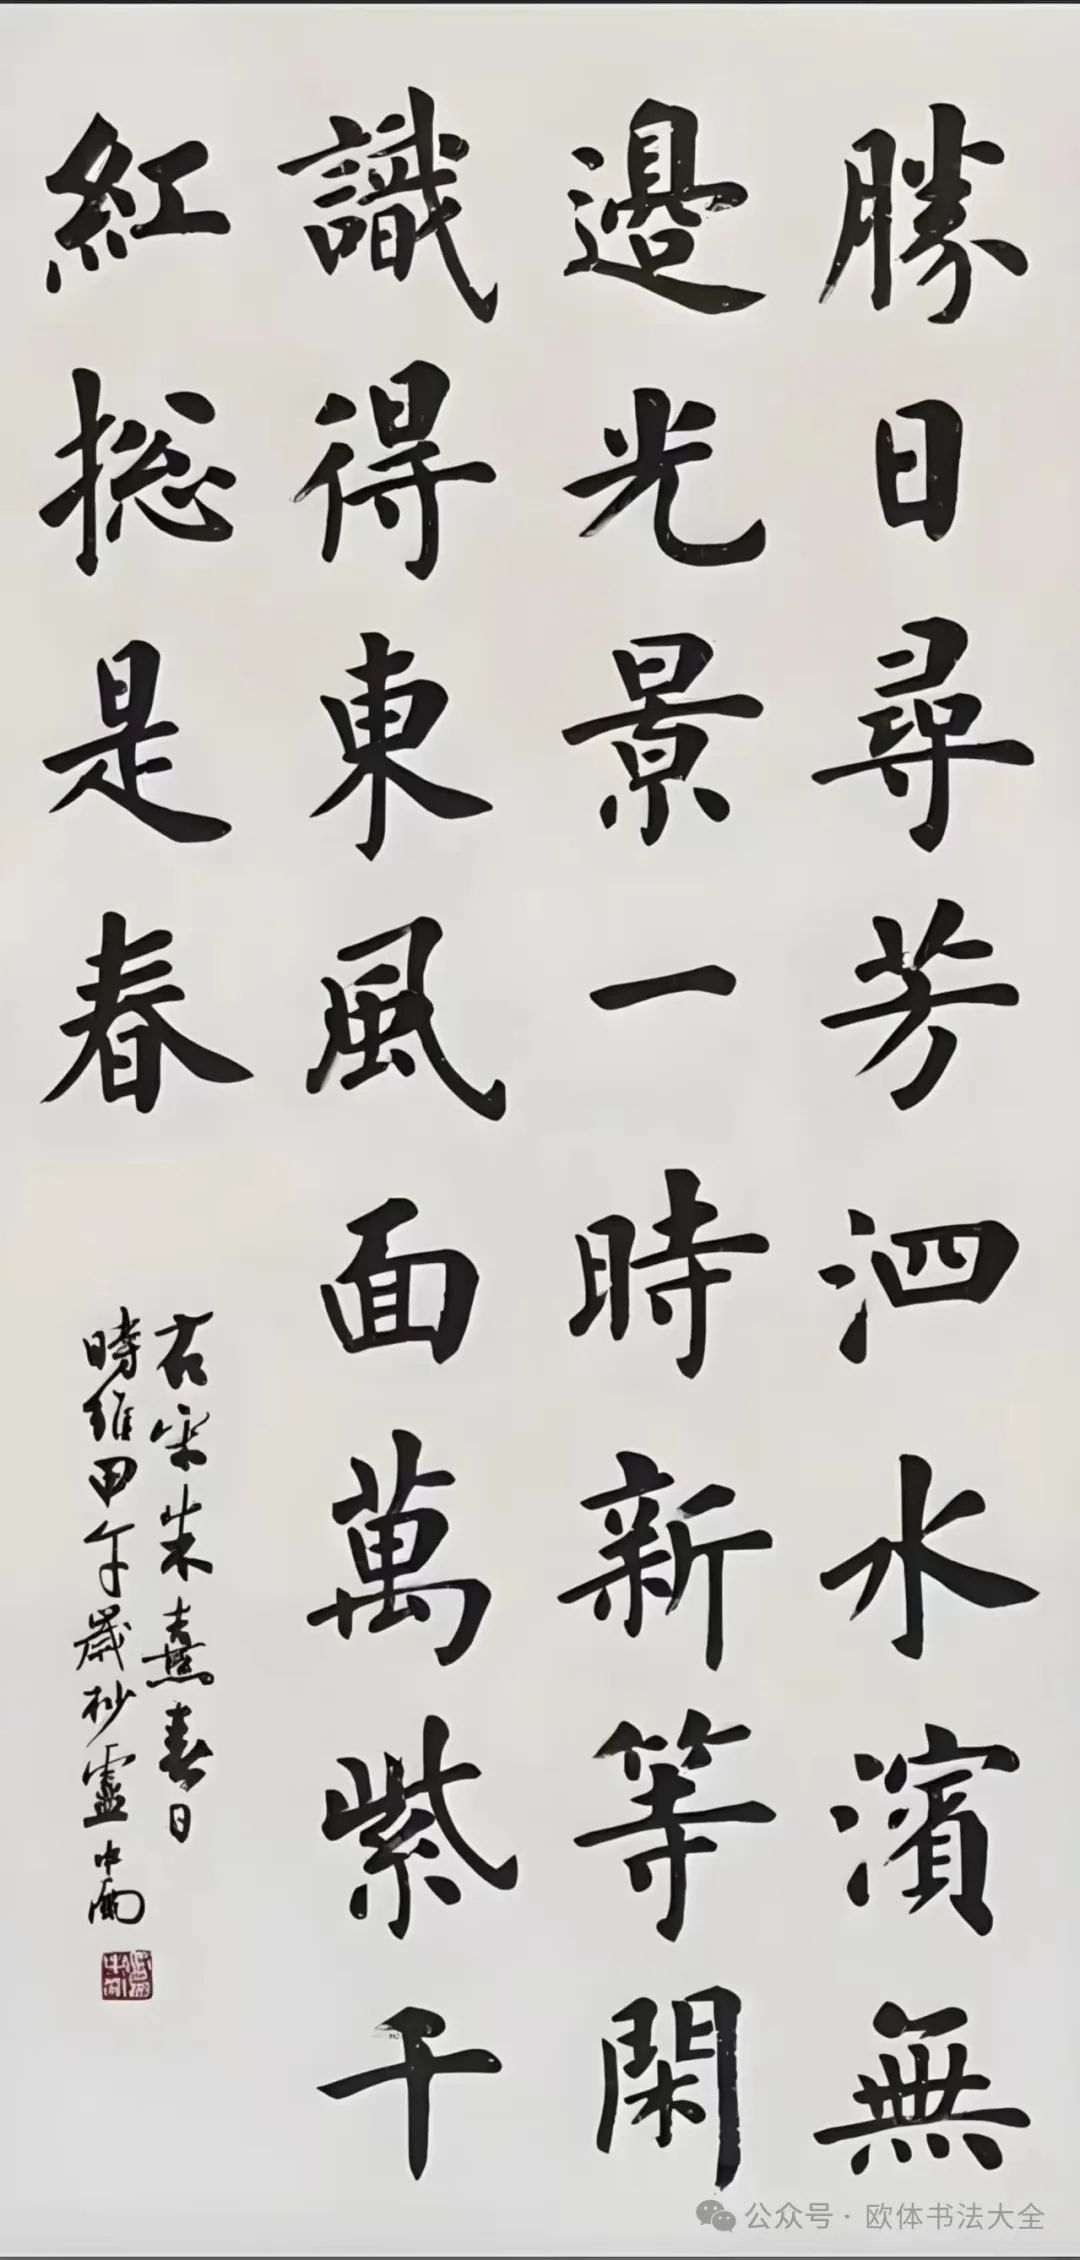 勝日尋芳泗水濱無
邊光景一時新等閑
識得東風面萬紫千
紅捴是春
右宋朱熹春日
時維甲午歲杪盧中南
公众号 · 欧体书法大全